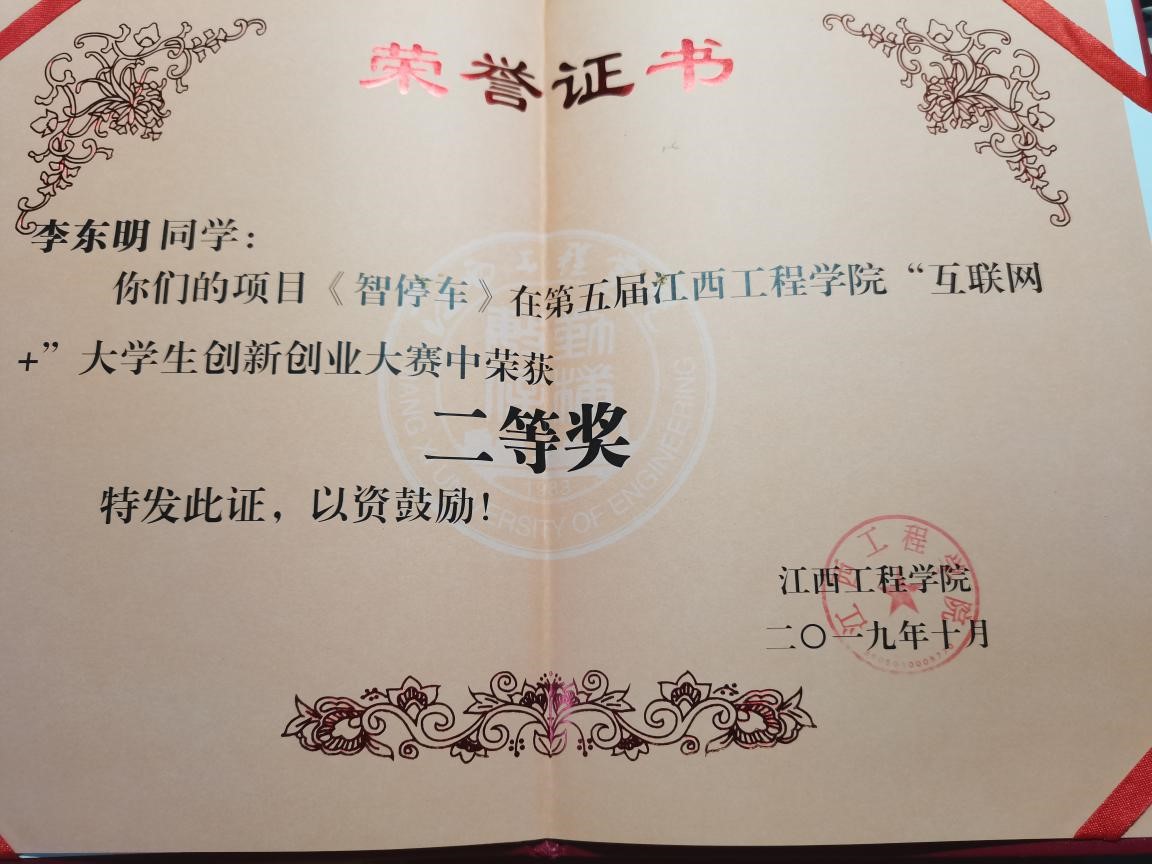 荣誉证书
李东明同学：
你们的项目《智停车》在第五届江西工程学院“互联网
+”大学生创新创业大赛中荣获
二等奖
特发此证，以资鼓励！
江西工程学院
二〇一九年十月
江西工程学院
UNIVERSITY OF ENGINEERING
1983